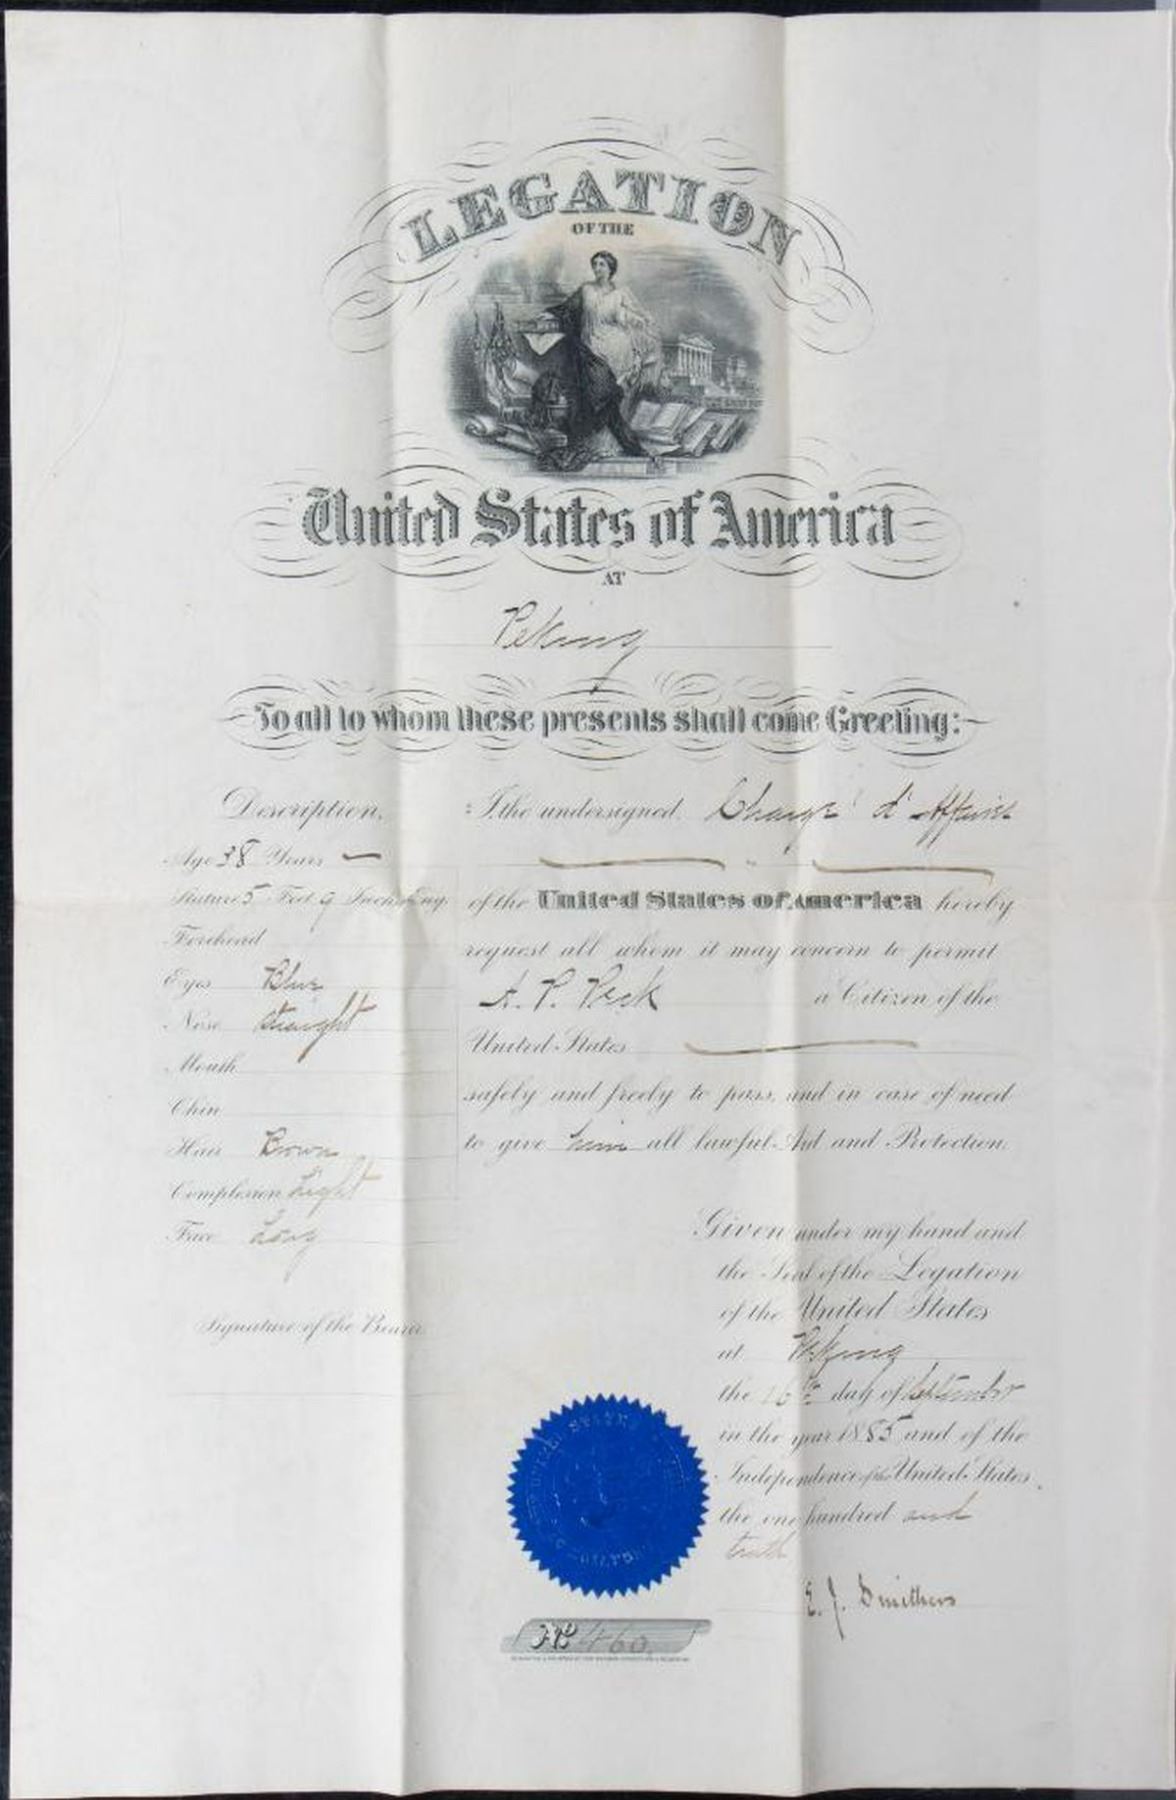 LEGATION
OF THE
United States of America
AT
Peking
To all to whom these presents shall come Greeting:
Description.
Age 38 Years
Stature 5 Feet 9 Inches Eng.
Forehead
Eyes Blue
Nose Straight
Mouth
Chin
Hair Brown
Complexion Light
Face Long
Signature of the Bearer
I the undersigned Chargé d'Affaires
of the United States of America hereby
request all whom it may concern to permit
A. P. Peck a Citizen of the
United States
safely and freely to pass, and in case of need
to give him all lawful Aid and Protection.
Given under my hand and
the Seal of the Legation
of the United States
at Peking
the 16th day of September
in the year 1885 and of the
Independence of the United States
the one hundred and
tenth
E. J. Smithers
UNITED STATES
No 460.